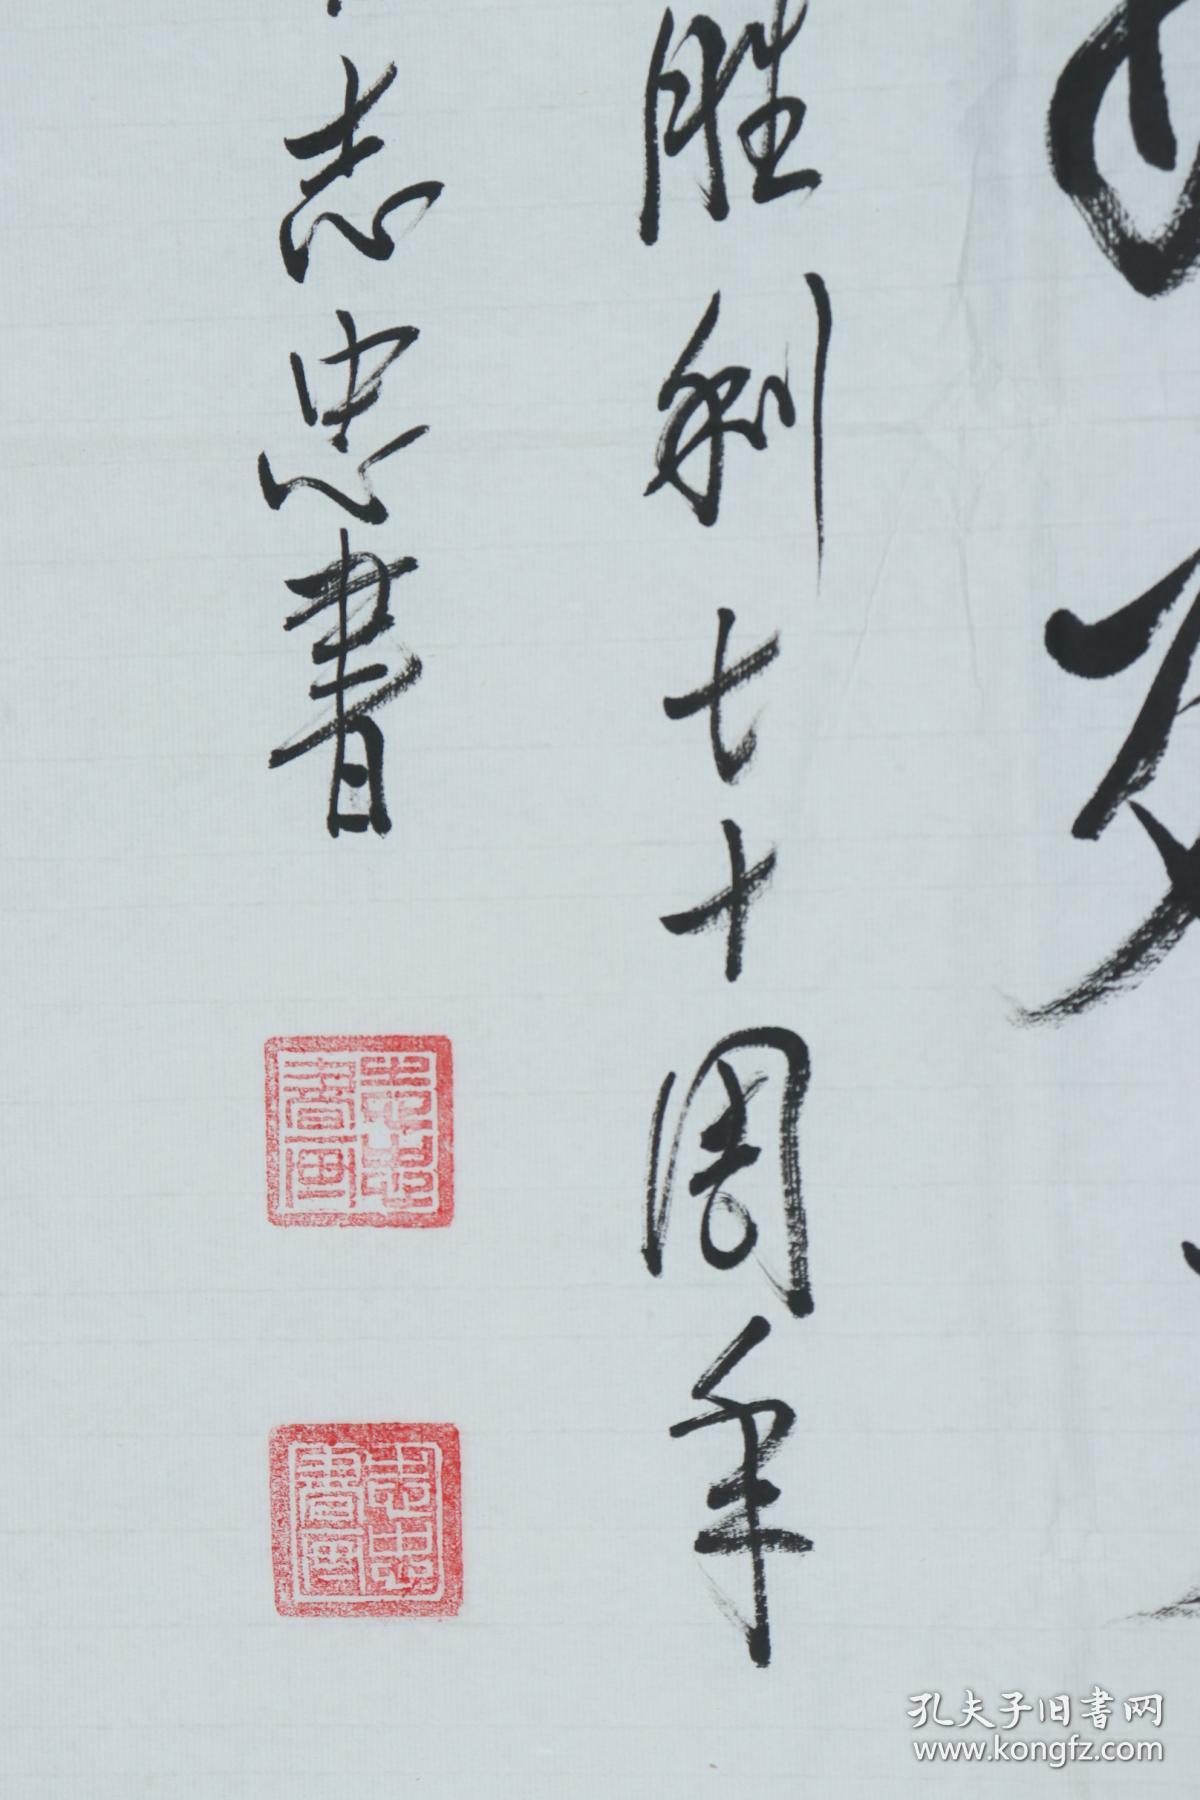 胜利七十周年
志忠書
志忠書画
志忠書画
孔夫子旧書网
www.kongfz.com